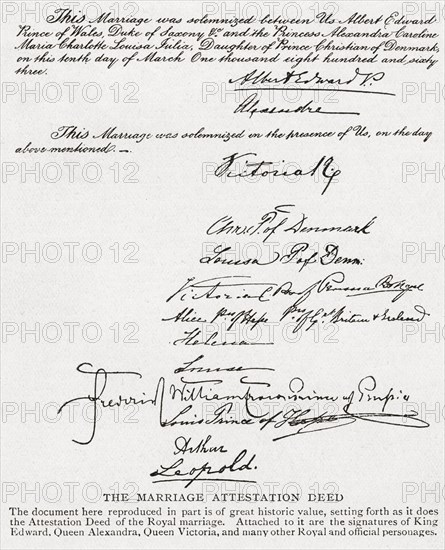 This Marriage was solemnized between Us Albert Edward
Prince of Wales, Duke of Saxony &c and the Princess Alexandra Caroline
Maria Charlotte Louisa Julia, Daughter of Prince Christian of Denmark,
on this tenth day of March One thousand eight hundred and sixty
three.
Albert Edward P.
Alexandra
This Marriage was solemnized on the presence of Us, on the day
above mentioned. —
Victoria R
Chrn P. of Denmark
Louisa P of Denm:
Victoria
Alice Pss of Hesse Pss of Gt Britain & Ireland
Helena
Louise
Frederick William Crown Prince of Prussia
Louis Prince of Hesse
Arthur
Leopold.
THE MARRIAGE ATTESTATION DEED
The document here reproduced in part is of great historic value, setting forth as it does
the Attestation Deed of the Royal marriage. Attached to it are the signatures of King
Edward, Queen Alexandra, Queen Victoria, and many other Royal and official personages.
PHOTO 12